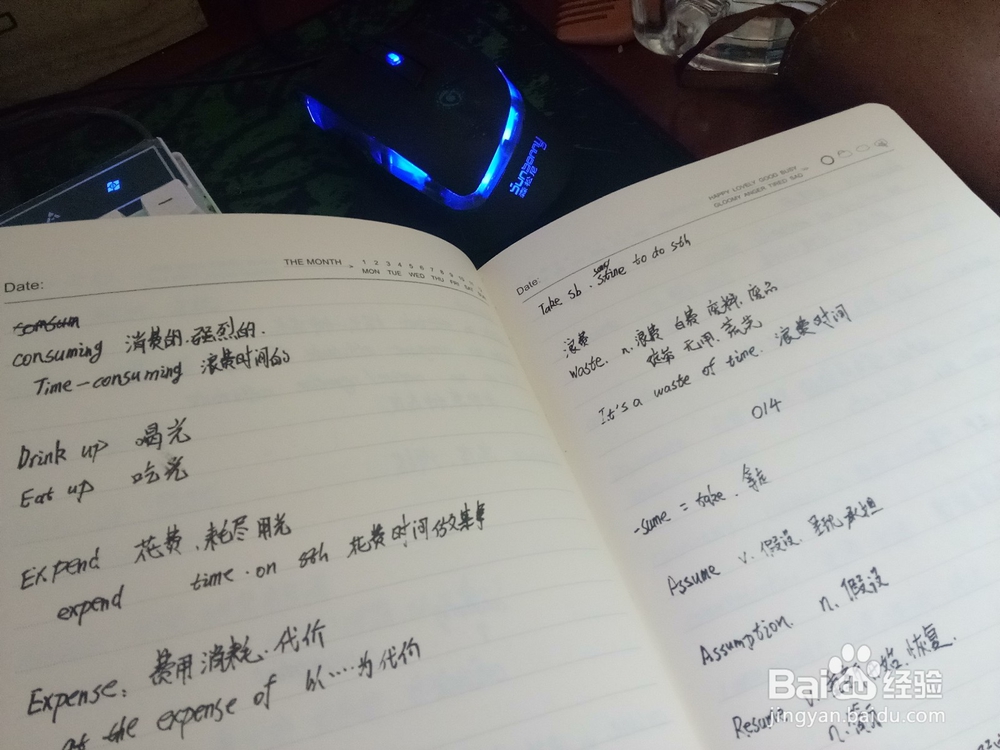 Sunsonny
森松尼
Date:
THE MONTH » 1 2 3 4 5 6 7 8 9 10
MON TUE WED THU FRI SAT
consuming 消费的.强烈的.
Time-consuming 浪费时间的
Drink up 喝光
Eat up 吃光
Expend 花费、耗尽用光
expend time.on sth 花费时间做某事
Expense: 费用消耗.代价
at the expense of 以……为代价
HAPPY LOVELY GOOD BUSY
GLOOMY ANGER TIRED SAD
Date:
Take sb. time to do sth
浪费
waste. n.浪费 白费 废料.废品
无用.
It's a waste of time. 浪费时间
014
-sume = take.拿
Assume v.假设. 承担
Assumption. n.假设
恢复.
n.
Baidu 经验
jingyan.baidu.com